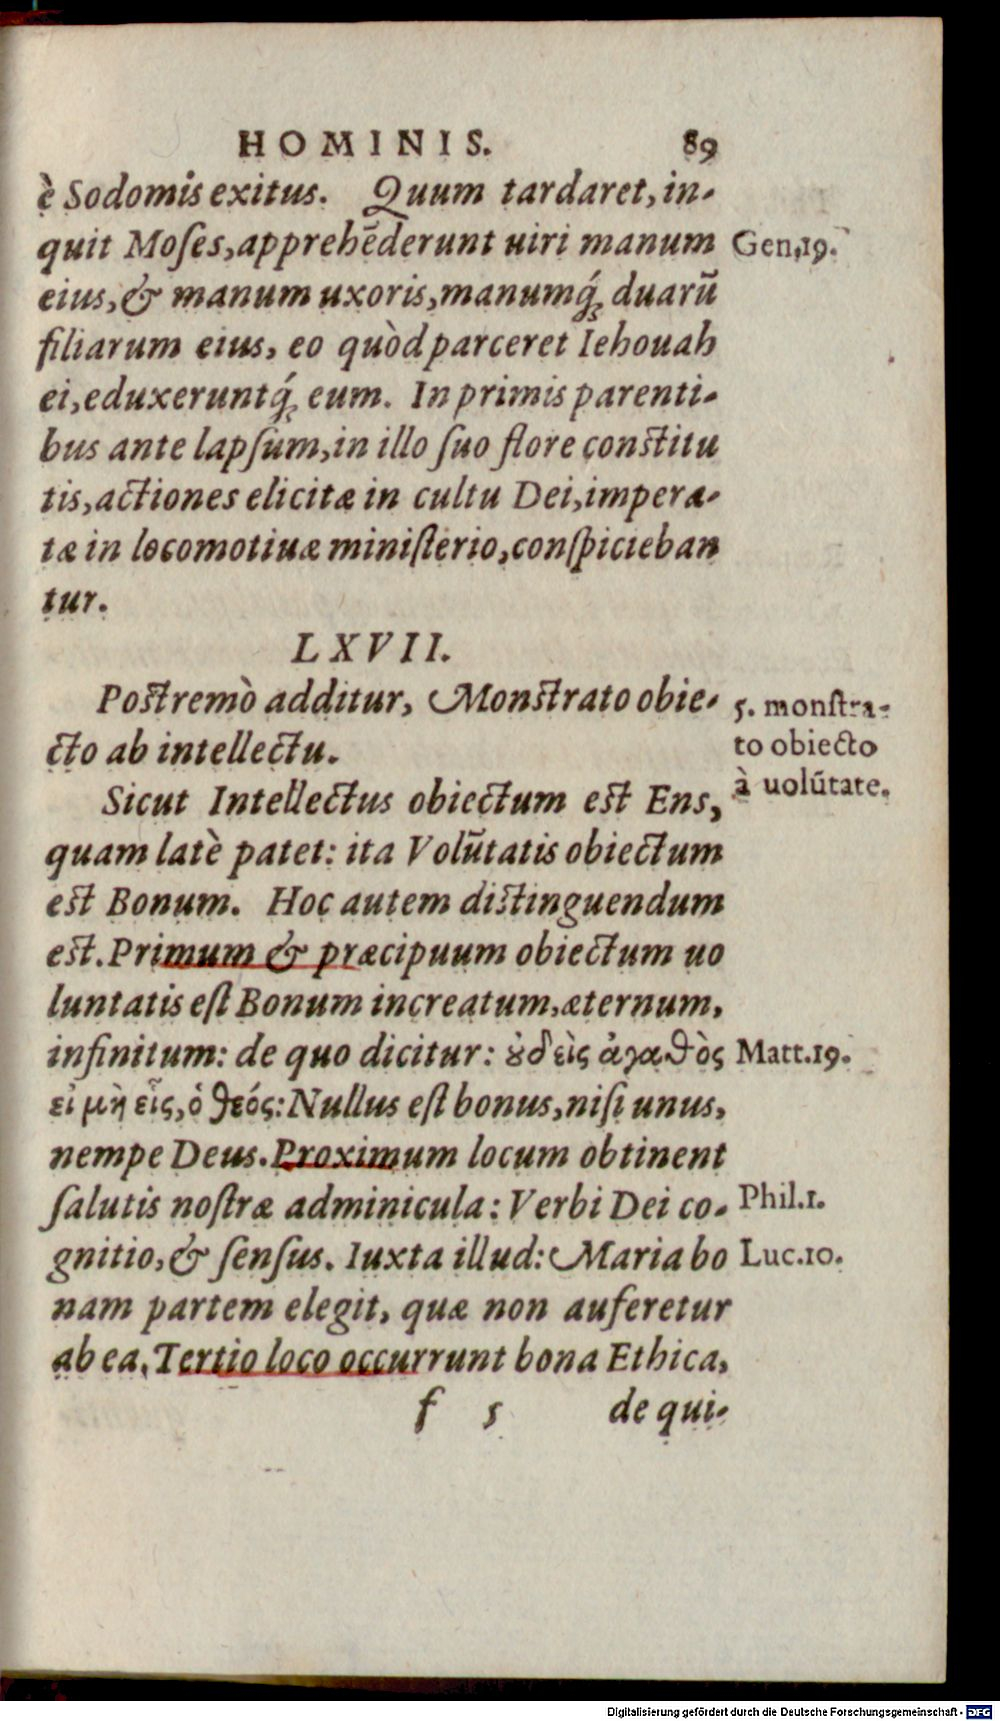 HOMINIS. 89
è Sodomis exitus. Quum tardaret, in-
quit Moſes, apprehẽderunt uiri manum
Gen.19.
eius, & manum uxoris, manumq́; duarũ
filiarum eius, eo quòd parceret Iehouah
ei, eduxeruntq́; eum. In primis parenti-
bus ante lapſum, in illo ſuo flore conſtitu
tis, actiones elicitæ in cultu Dei, impera-
tæ in locomotiuæ miniſterio, conſpicieban
tur.
LXVII.
Poſtremò additur, Monſtrato obie-
cto ab intellectu.
5. monſtra-
to obiecto
à uolũtate.
Sicut Intellectus obiectum eſt Ens,
quam latè patet: ita Volũtatis obiectum
eſt Bonum. Hoc autem diſtinguendum
eſt. Primum & præcipuum obiectum uo
luntatis eſt Bonum increatum, æternum,
infinitum: de quo dicitur: ȣ̓δεὶς ἀγαθὸς
Matt.19.
εἰ μὴ εἷς, ὁ θεός: Nullus eſt bonus, niſi unus,
nempe Deus. Proximum locum obtinent
ſalutis noſtræ adminicula: Verbi Dei co-
Phil.1.
gnitio, & ſenſus. Iuxta illud: Maria bo
Luc.10.
nam partem elegit, quæ non auferetur
ab ea. Tertio loco occurrunt bona Ethica,
f 5 de qui-
Digitalisierung gefördert durch die Deutsche Forschungsgemeinschaft - DFG